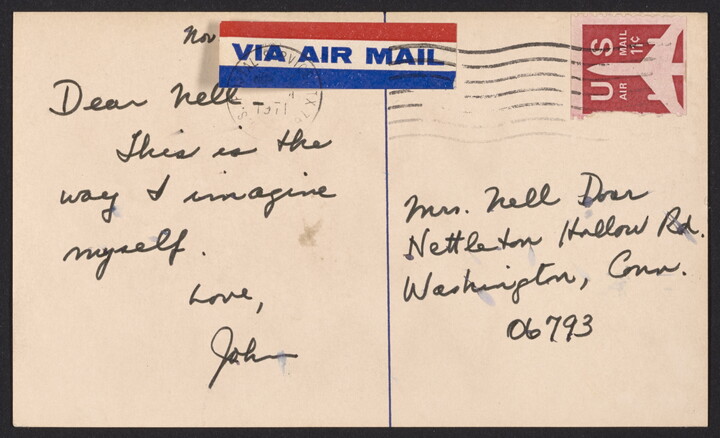 Nov
VIA AIR MAIL
Dear Nell _
This is the
way I imagine
myself.
Love,
John
1971
TX
US
AIR MAIL
11¢
Mrs. Nell Dorr
Nettleton Hollow Rd.
Washington, Conn.
06793